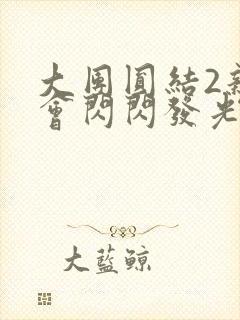 大團圓結2新
會閃閃發光
大藍鯨